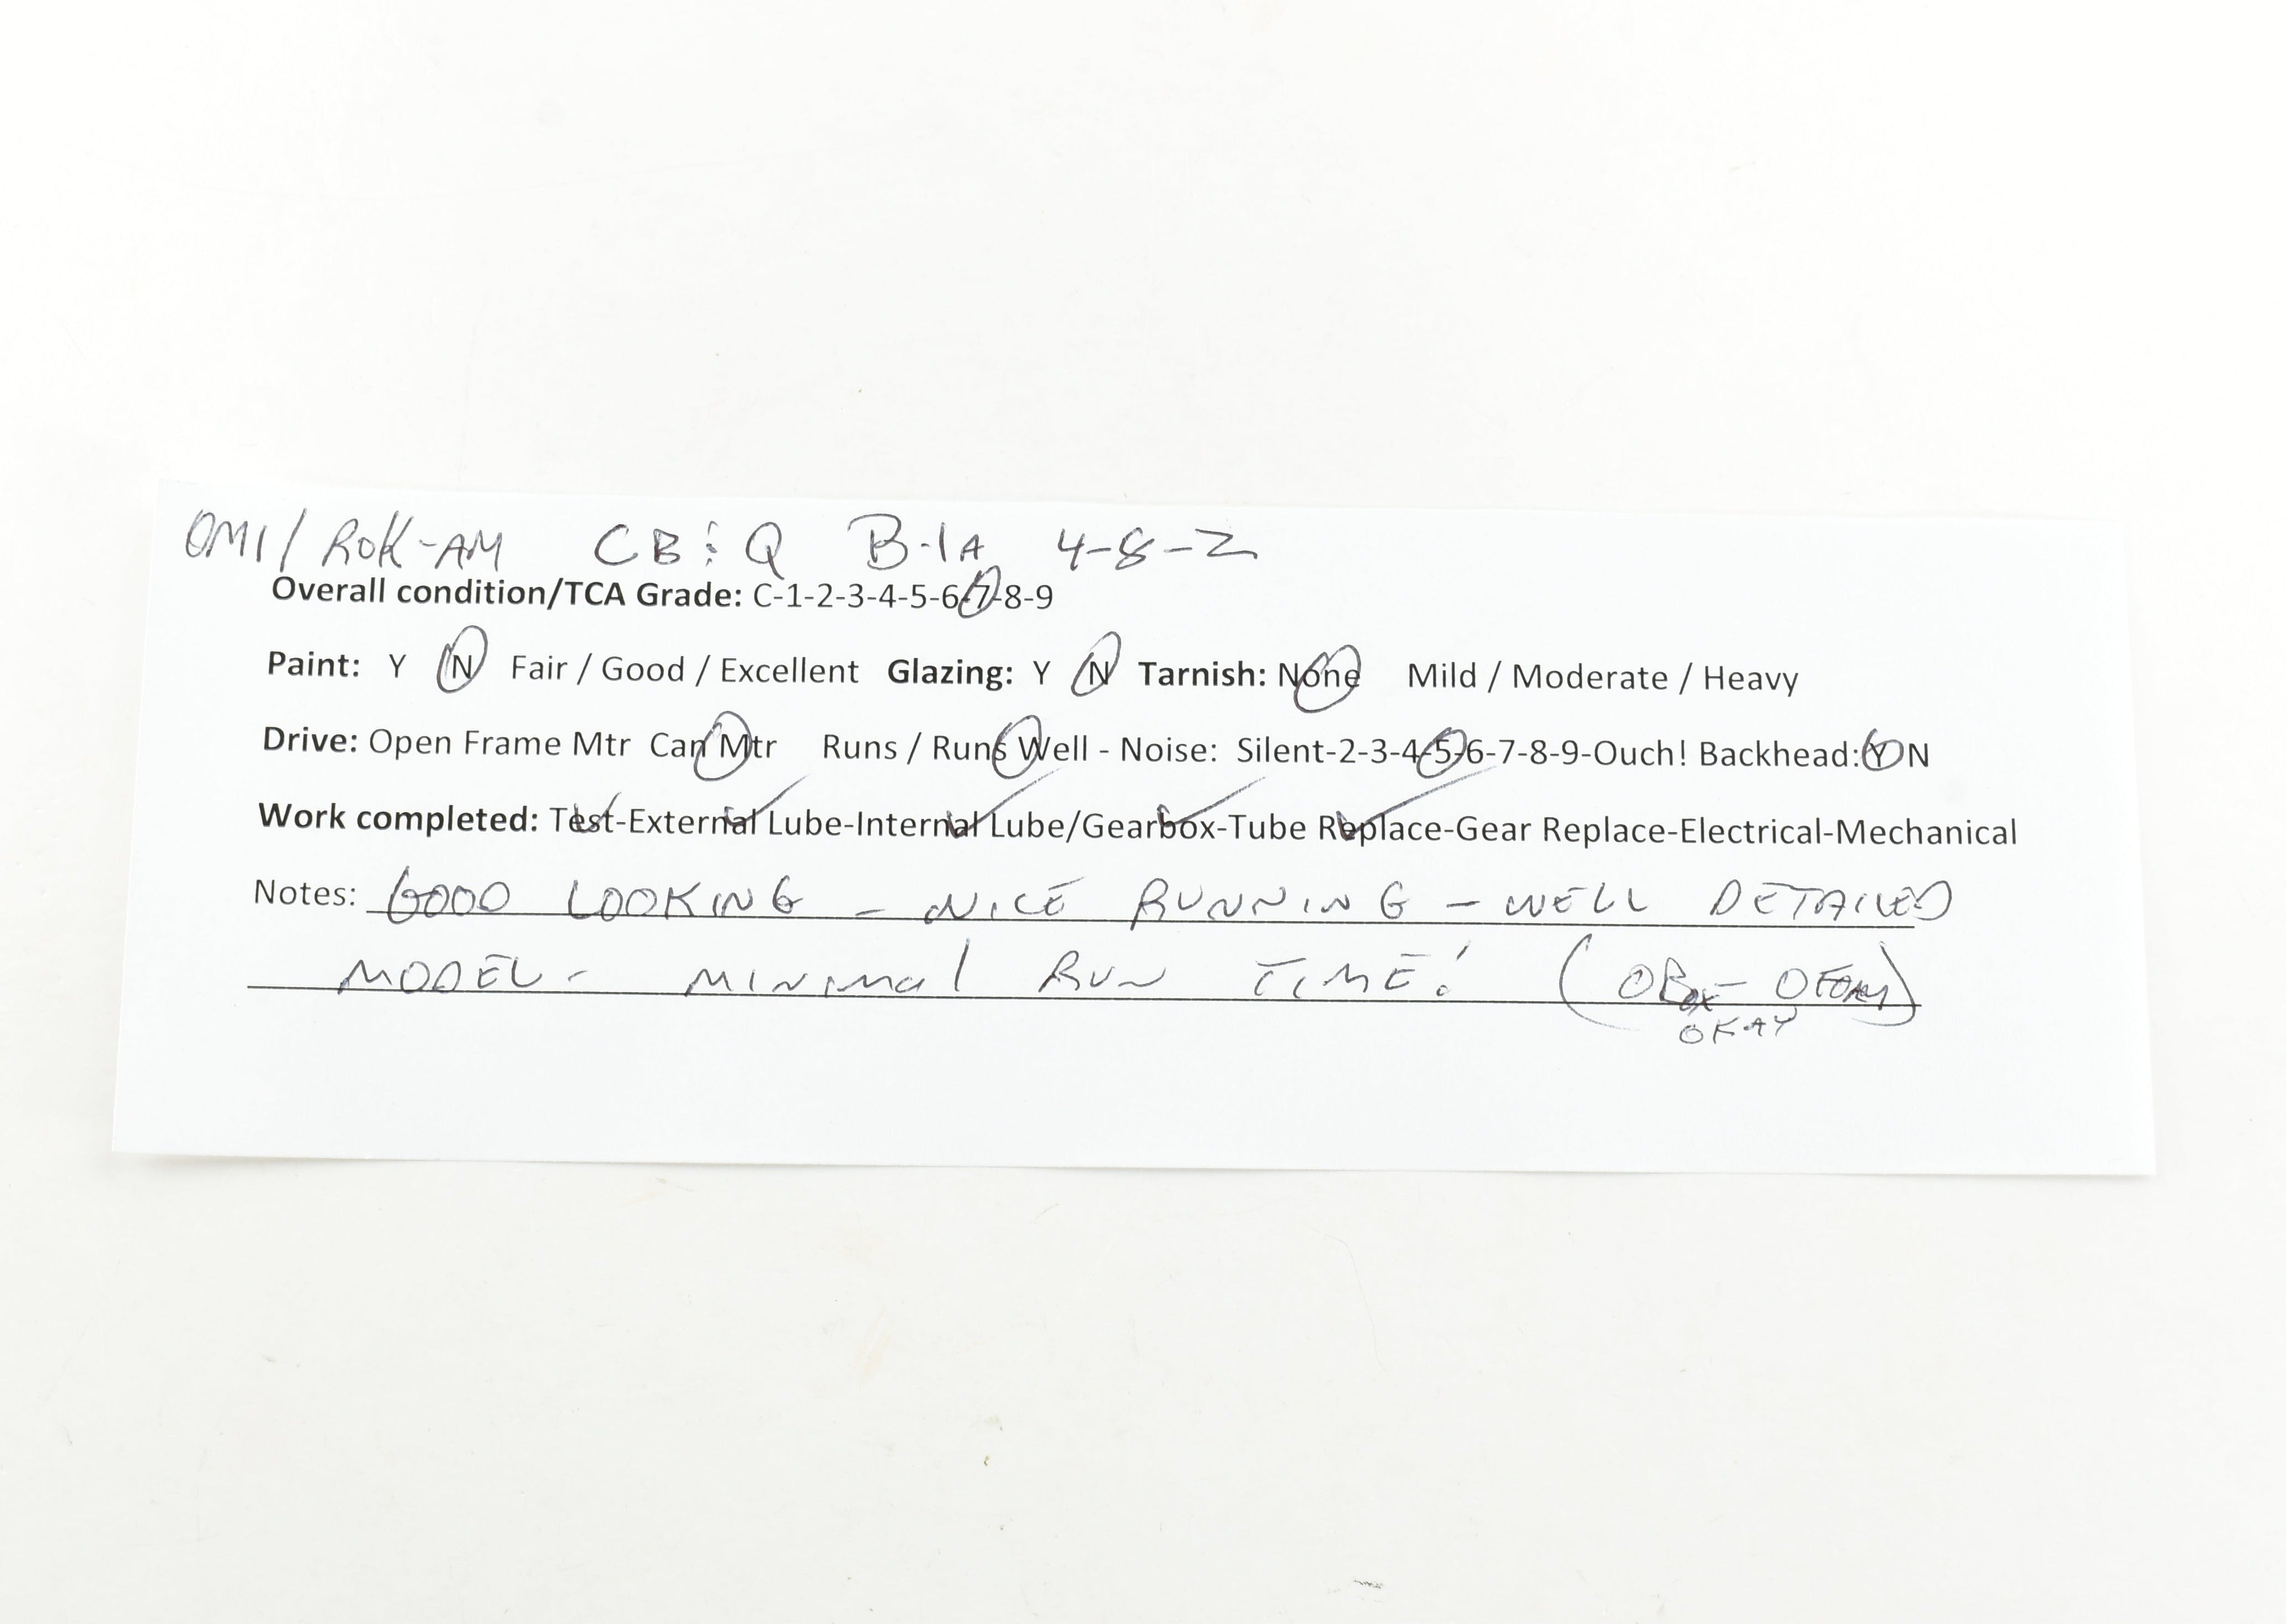 OMI/ROK-AM CB&Q B-1A 4-8-2
Overall condition/TCA Grade: C-1-2-3-4-5-6-7-8-9
Paint: Y N Fair / Good / Excellent Glazing: Y N Tarnish: None Mild / Moderate / Heavy
Drive: Open Frame Mtr Can Mtr Runs / Runs Well - Noise: Silent-2-3-4-5-6-7-8-9-Ouch! Backhead: Y N
Work completed: Test-External Lube-Internal Lube/Gearbox-Tube Replace-Gear Replace-Electrical-Mechanical
Notes: GOOD LOOKING - NICE RUNNING - WELL DETAILED
MODEL - MINIMAL RUN TIME! (OBOX - OFOAM)
OKAY